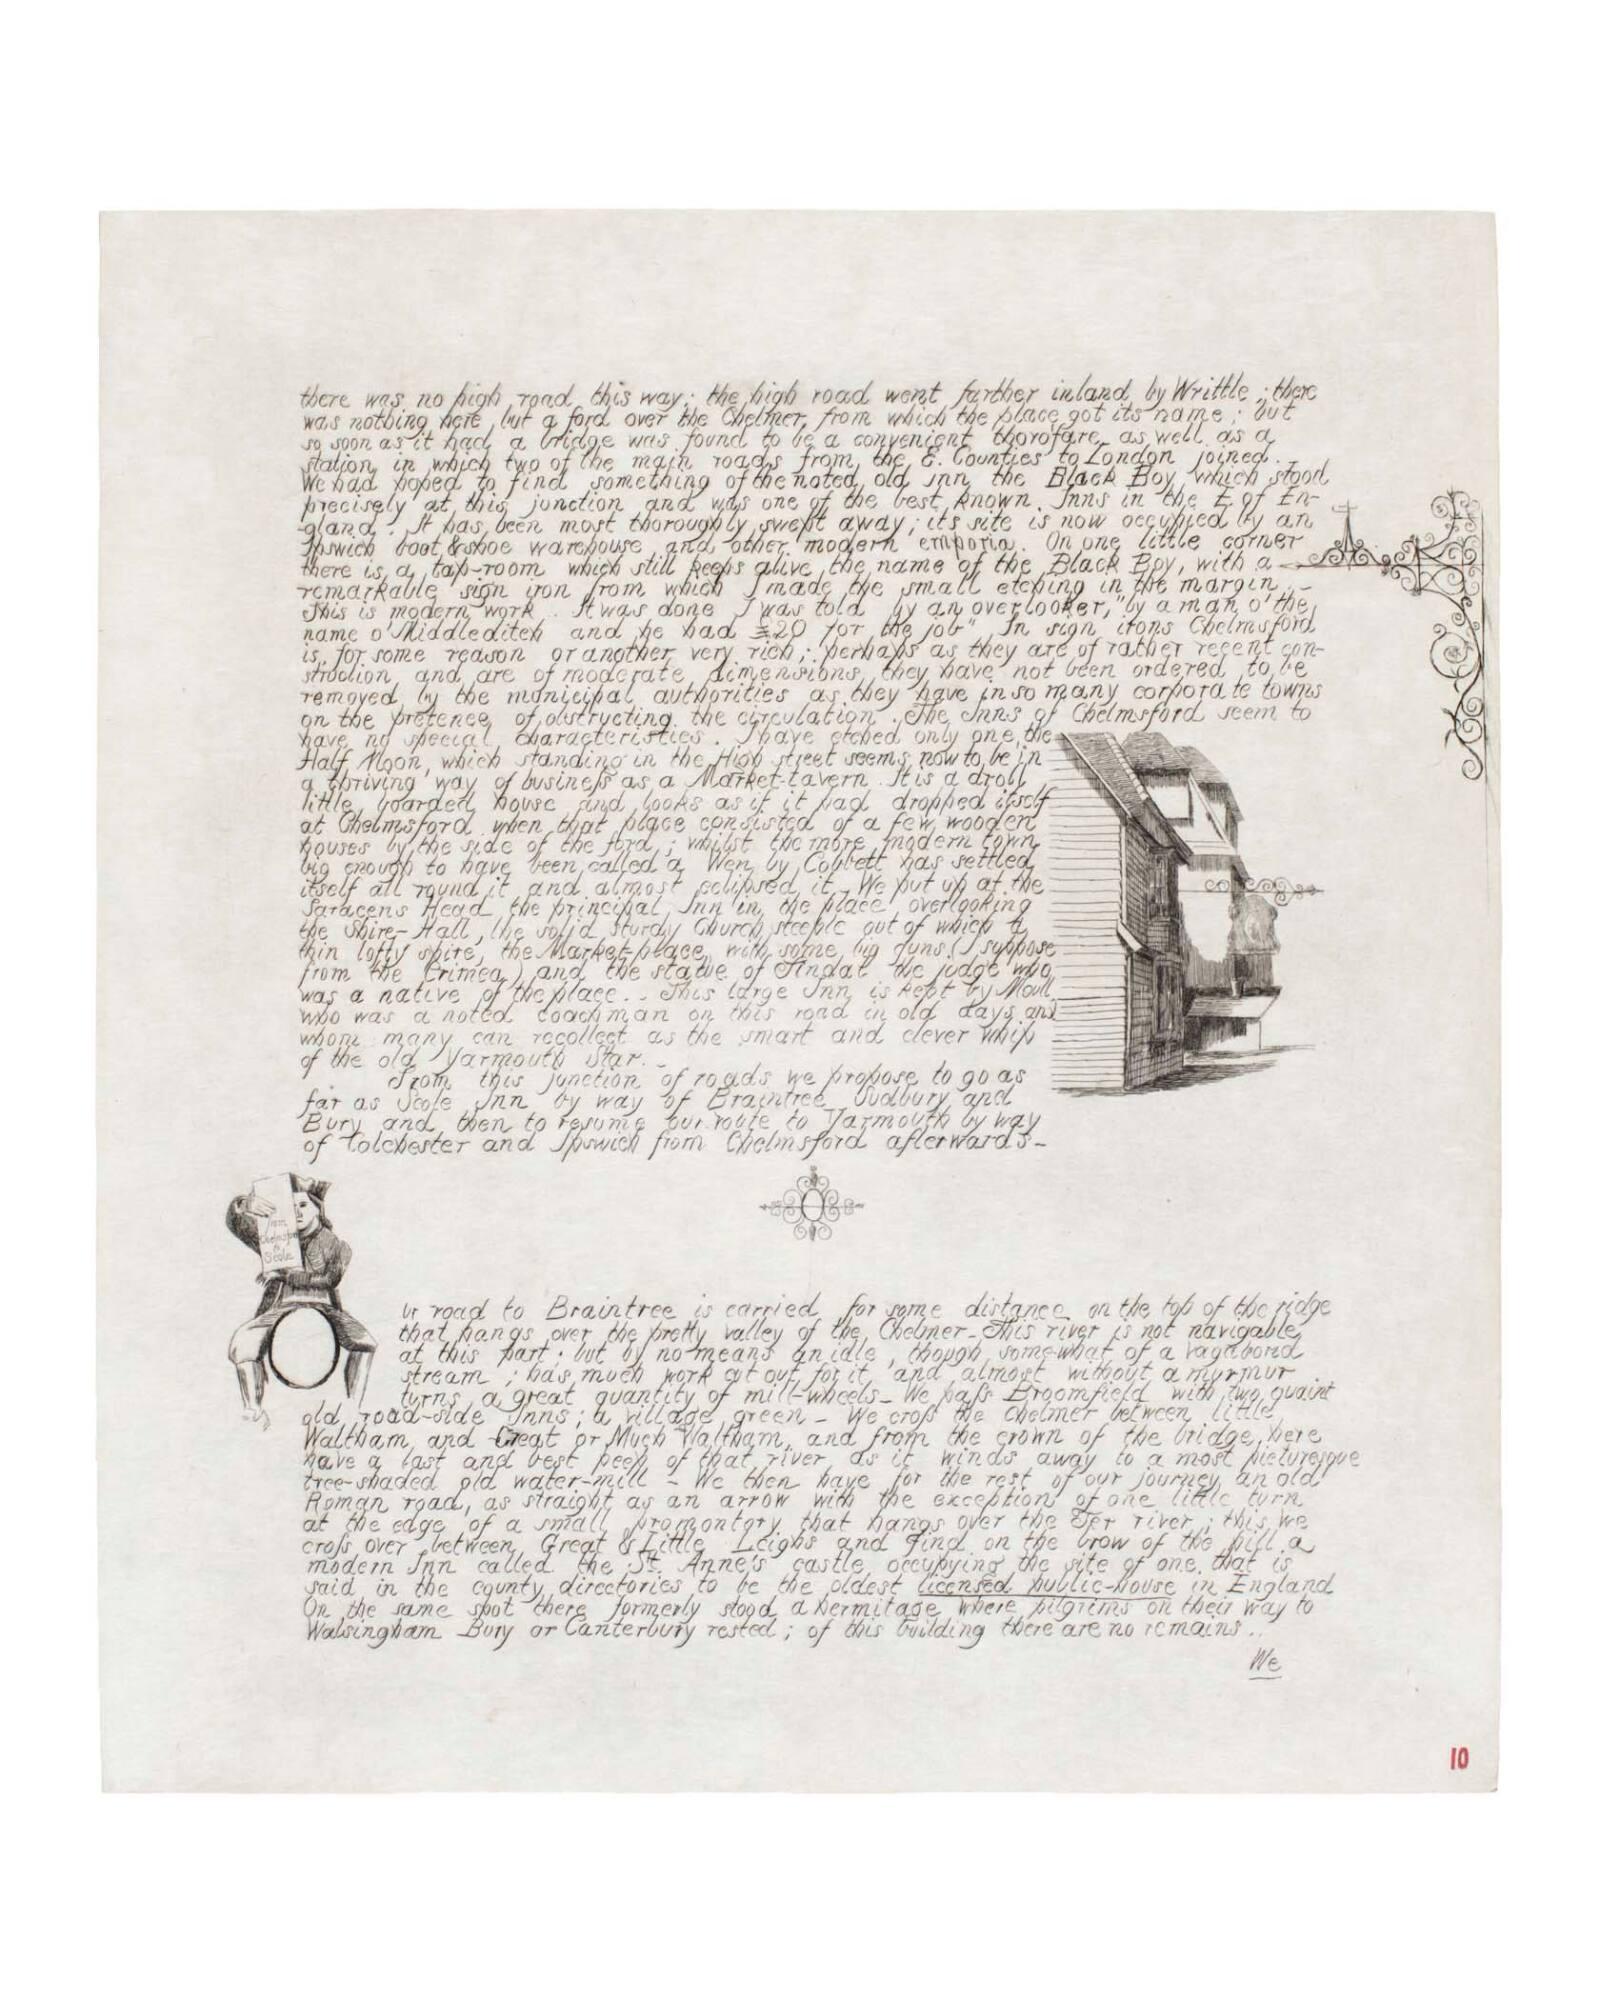 there was no high road this way; the high road went further inland by Writtle; there
was nothing here but a ford over the Chelmer, from which the place got its name; but
so soon as it had a bridge was found to be a convenient thorofare as well as a
station in which two of the main roads from the E. Counties to London joined.
We had hoped to find something of the noted old Inn the Black Boy which stood
precisely at this junction and was one of the best known Inns in the E of En-
-gland. It has been most thoroughly swept away; its site is now occupied by an
Ipswich boot & shoe warehouse and other modern emporia. On one little corner
there is a tap-room which still keeps alive the name of the Black Boy, with a
remarkable sign iron from which I made the small etching in the margin.-
This is modern work. It was done I was told by an overlooker, "by a man o' the
name o' Middleditch and he had £20 for the job" In sign irons Chelmsford
is for some reason or another very rich; perhaps as they are of rather recent con-
struction and are of moderate dimensions they have not been ordered to be
removed by the municipal authorities as they have in so many corporate towns
on the pretence of obstructing the circulation. The Inns of Chelmsford seem to
have no special characteristics. I have etched only one, the
Half Moon, which standing in the High street seems now to be in
a thriving way of busineſs as a Market-tavern. It is a droll
little boarded house and looks as if it had dropped itself
at Chelmsford when that place consisted of a few wooden
houses by the side of the ford; whilst the more modern town
big enough to have been called a Wen by Cobbett has settled
itself all round it and almost eclipsed it. We put up at the
Saracens Head the principal Inn in the place overlooking
the Shire-Hall, the solid sturdy Church steeple out of which a
thin lofty spire, the Market-place with some big guns (I suppose
from the Crimea) and the statue of Tindal the judge who
was a native of the place.. This large Inn is kept by Moull
who was a noted coachman on this road in old days and
whom many can recollect as the smart and clever whip
of the old Yarmouth Star.-
From this junction of roads we propose to go as
far as Scole Inn by way of Braintree Sudbury and
Bury and then to resume our route to Yarmouth by way
of Colchester and Ipswich from Chelmsford afterwards-
Chelmsford
to
Scole
ur road to Braintree is carried for some distance on the top of the ridge
that hangs over the pretty valley of the Chelmer- This river is not navigable
at this part; but by no means an idle, though somewhat of a vagabond
stream; has much work cut out for it and almost without a murmur
turns a great quantity of mill-wheels- We paſs Broomfield with two quaint
old road-side Inns; a village green - We croſs the Chelmer between little
Waltham and Great or Much Waltham, and from the crown of the bridge here
have a last and best peep of that river as it winds away to a most picturesque
tree-shaded old water-mill - We then have for the rest of our journey an old
Roman road, as straight as an arrow with the exception of one little turn
at the edge of a small promontory that hangs over the Ter river; this we
croſs over between Great & Little Leighs and find on the brow of the hill a
modern Inn called the St. Anne's castle occupying the site of one that is
said in the county directories to be the oldest licensed public-house in England
On the same spot there formerly stood a hermitage where pilgrims on their way to
Walsingham Bury or Canterbury rested; of this building there are no remains..
We
10